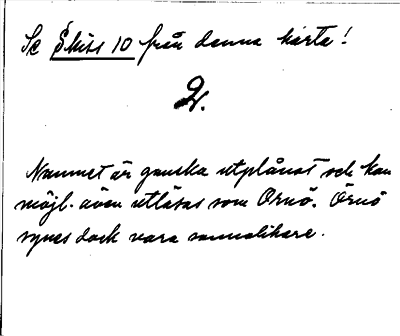 Se Skiss 10 från denna karta!
2.
Namnet är ganska utplånat och kan
möjl. även utläsas som Ornö. Örnö
synes dock vara sannolikare.